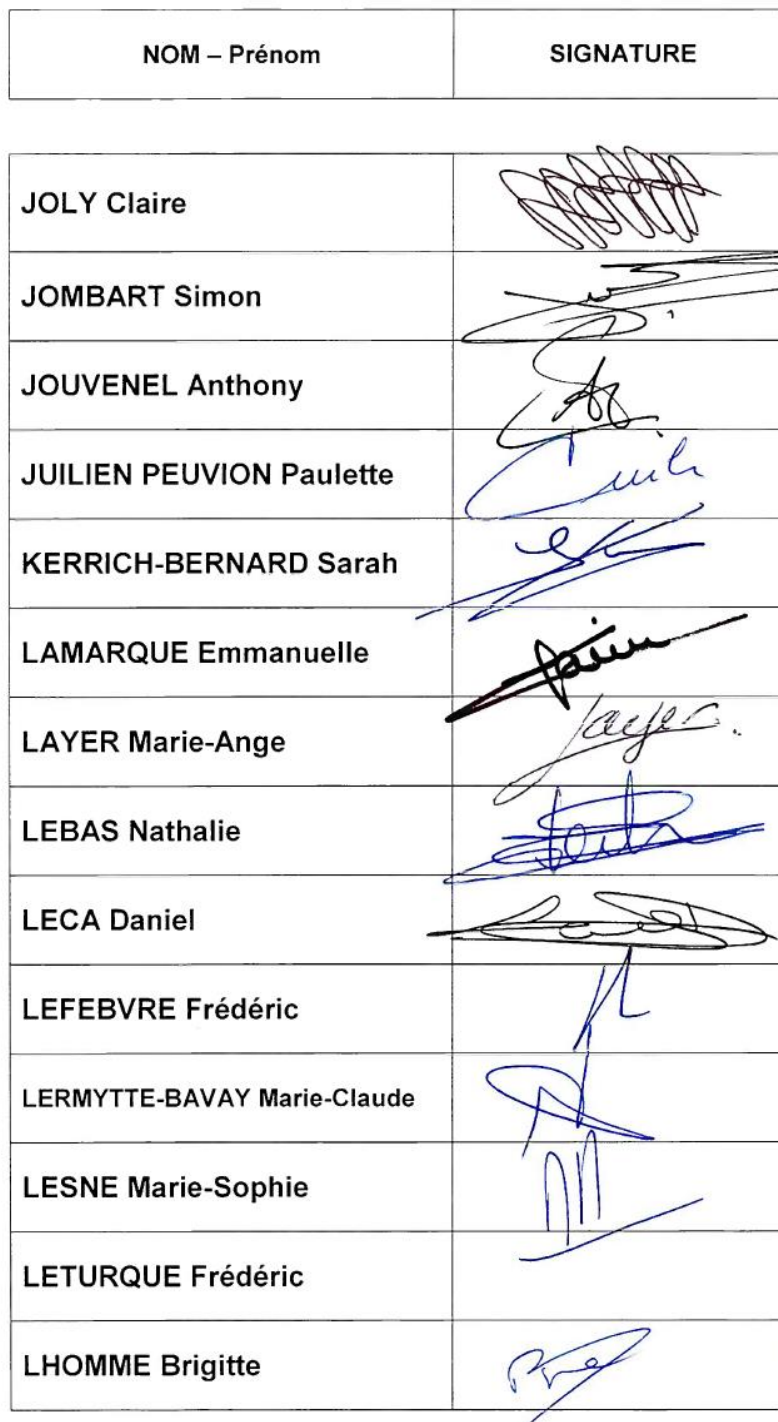 NOM – Prénom SIGNATURE
JOLY Claire
JOMBART Simon
JOUVENEL Anthony
JUILIEN PEUVION Paulette
KERRICH-BERNARD Sarah
LAMARQUE Emmanuelle
LAYER Marie-Ange
LEBAS Nathalie
LECA Daniel
LEFEBVRE Frédéric
LERMYTTE-BAVAY Marie-Claude
LESNE Marie-Sophie
LETURQUE Frédéric
LHOMME Brigitte